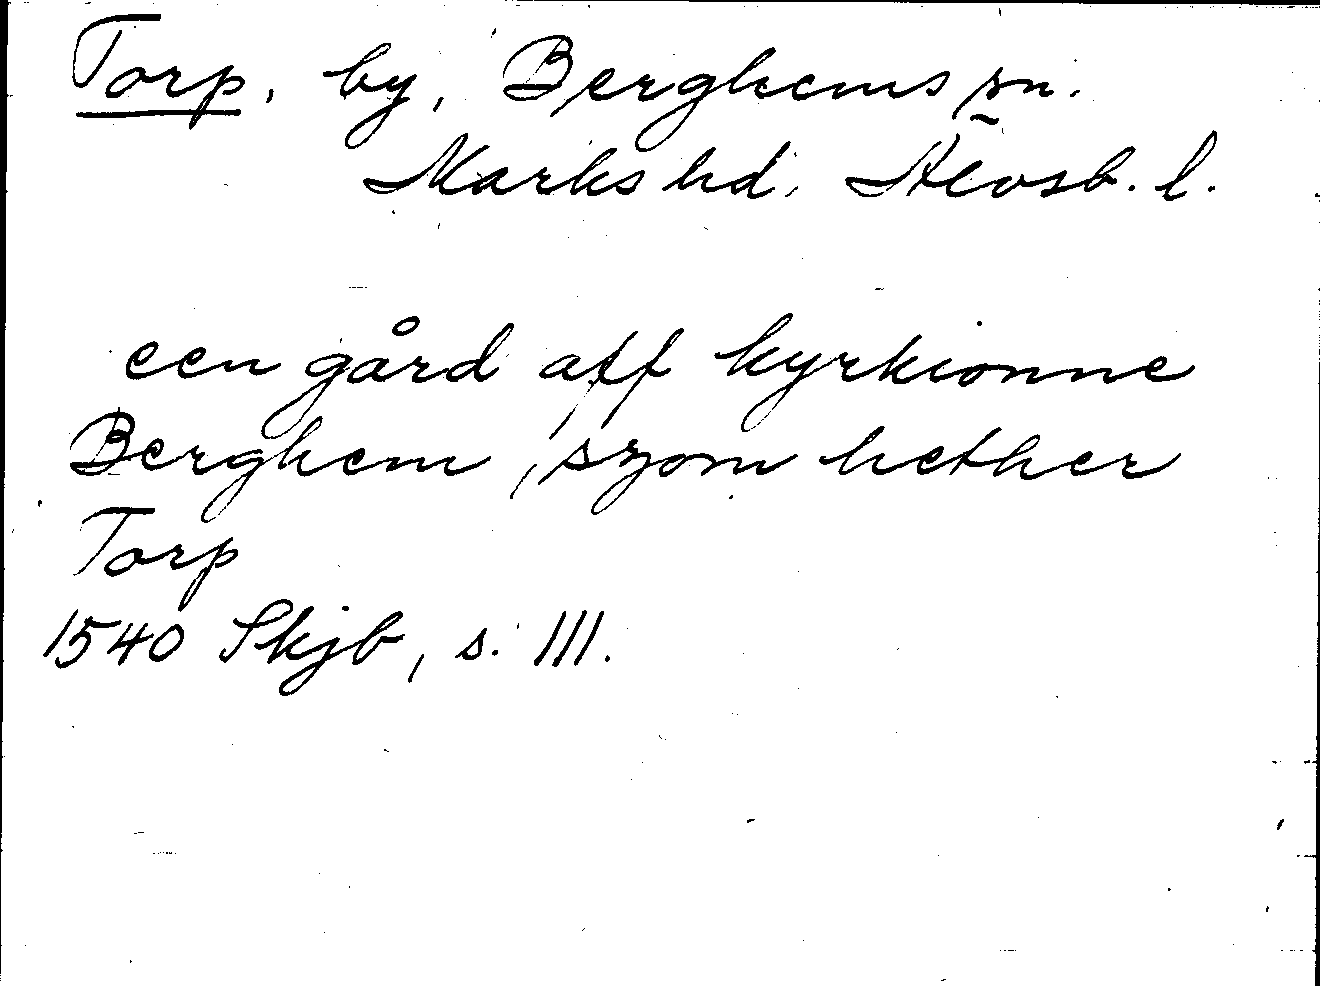 Torp, by, Berghems sn.
Marks hd, Älvsb. l.
een gård aff kyrkionne
Berghem, szom hether
Torp
1540 Skjb, s. 111.